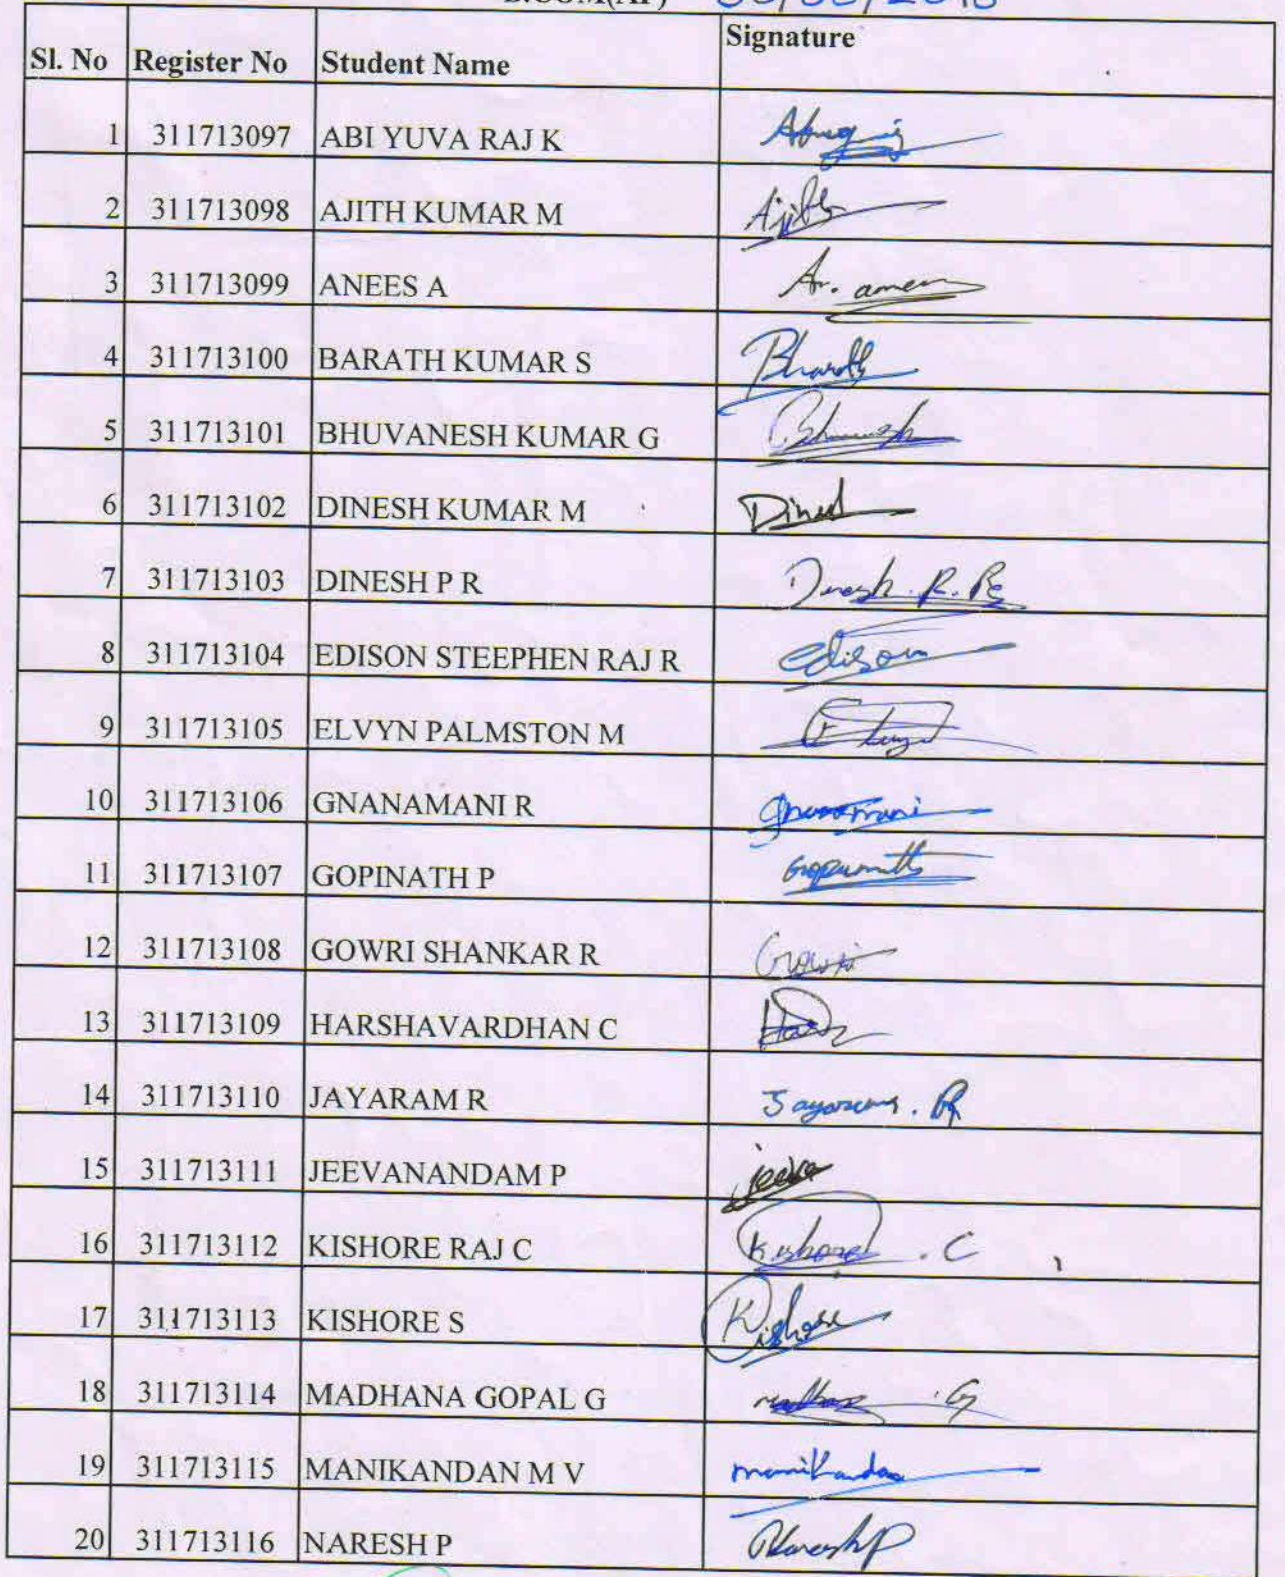 Sl. No Register No Student Name Signature
1 311713097 ABI YUVA RAJ K
2 311713098 AJITH KUMAR M Ajith
3 311713099 ANEES A
4 311713100 BARATH KUMAR S Bharath
5 311713101 BHUVANESH KUMAR G
6 311713102 DINESH KUMAR M Dinesh
7 311713103 DINESH P R
8 311713104 EDISON STEEPHEN RAJ R edison
9 311713105 ELVYN PALMSTON M
10 311713106 GNANAMANI R
11 311713107 GOPINATH P
12 311713108 GOWRI SHANKAR R Gowri
13 311713109 HARSHAVARDHAN C
14 311713110 JAYARAM R Jayaram. R
15 311713111 JEEVANANDAM P jeeva
16 311713112 KISHORE RAJ C Kishore . C
17 311713113 KISHORE S Kishore
18 311713114 MADHANA GOPAL G
19 311713115 MANIKANDAN M V manikandan
20 311713116 NARESH P Naresh P